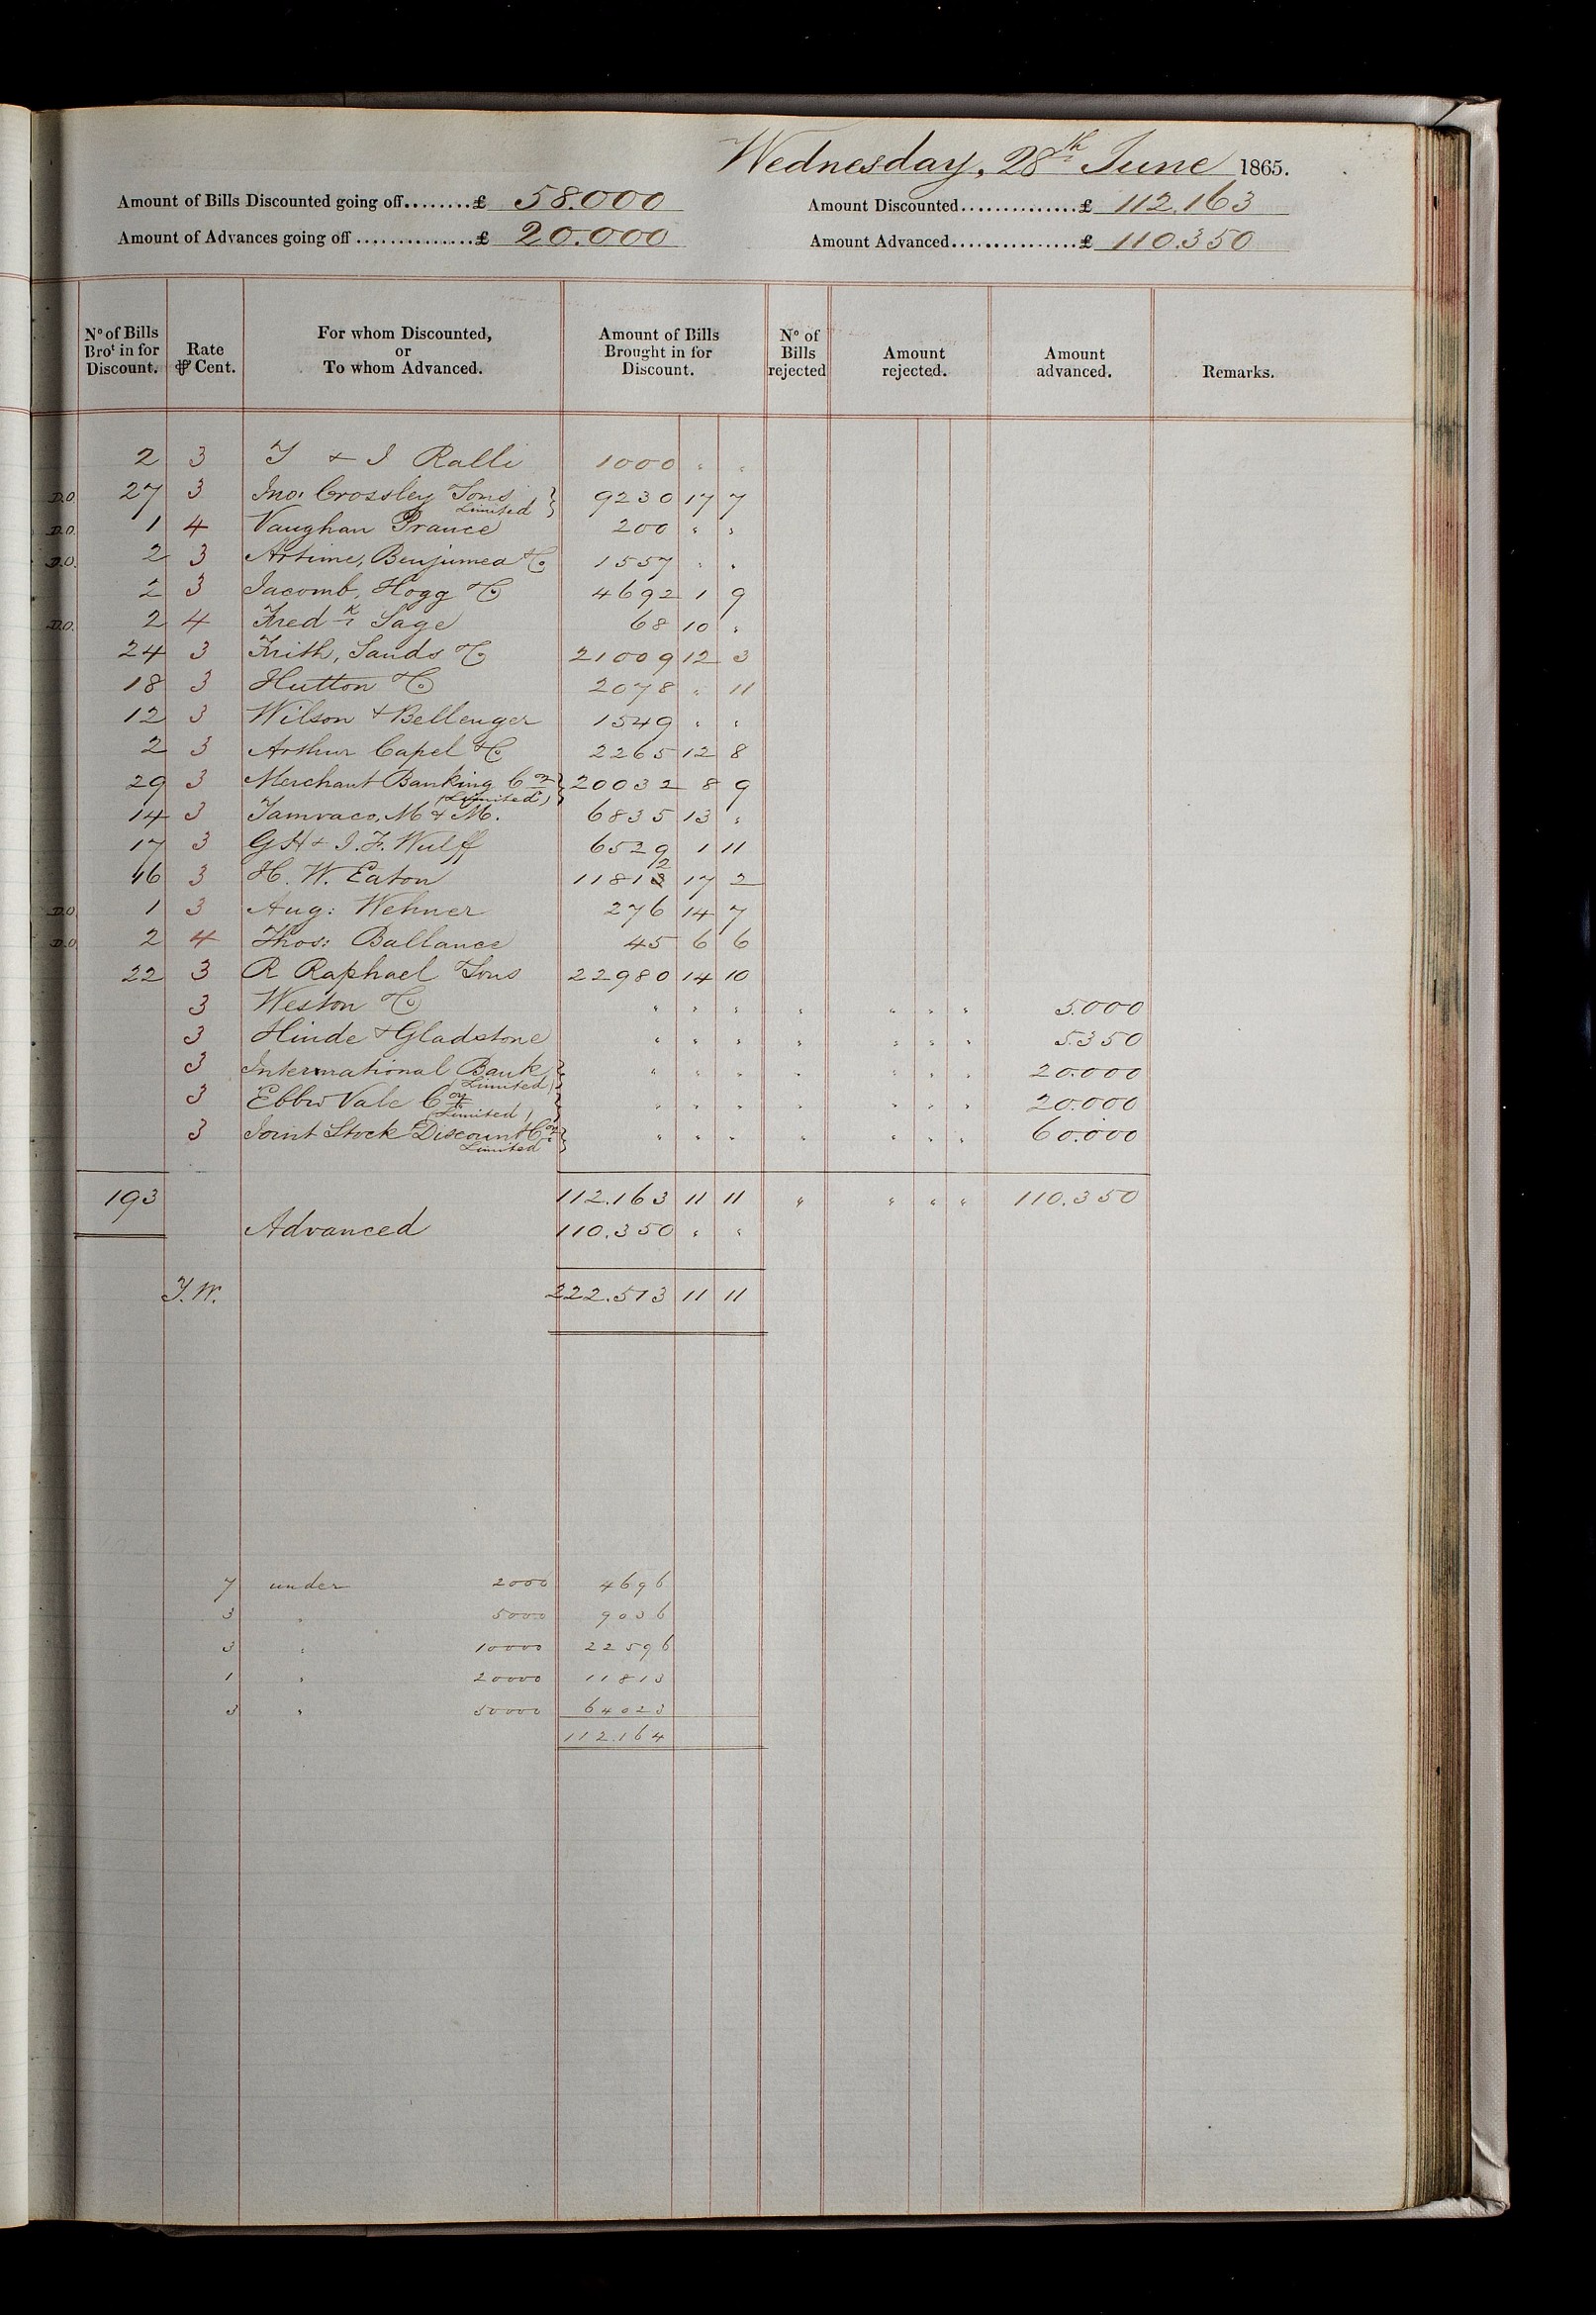 Wednesday, 28th June 1865.
Amount of Bills Discounted going off........£ 58.000 Amount Discounted..............£ 112.163
Amount of Advances going off...............£ 20.000 Amount Advanced...............£ 110.350
No of Bills Brot in for Discount. Rate ⅌ Cent. For whom Discounted, or To whom Advanced. Amount of Bills Brought in for Discount. No of Bills rejected Amount rejected. Amount advanced. Remarks.
2 3 & I Ralli 1000 " "
D.O. 27 3 Jno: Crossley Sons Limited 9230 17 7
D.O. 1 4 Vaughan Prance 200 " "
D.O. 2 3 Artime, Benjumea & Co 1557 " "
2 3 Jacomb, Hogg & Co 4692 1 9
D.O. 2 4 Fredk Sage 68 10 "
24 3 Frith, Sands & Co 21009 12 3
18 3 Hutton & Co 2078 " 11
12 3 Wilson & Bellenger 1549 " "
2 3 Arthur Capel & Co 2265 12 8
29 3 Merchant Banking Coy (Limited) 20032 8 9
14 3 Tamvaco, M & M. 6835 13 "
17 3 G H & I. F. Wulff 6529 1 11
16 3 H. W. Eaton 11812 17 2
D.O. 1 3 Aug: Wehner 276 14 7
D.O. 2 4 Thos: Ballance 45 6 6
22 3 R Raphael & Sons 22980 14 10
3 Weston & Co " " " " " " " 5.000
3 Hinde & Gladstone " " " " " " " 5.350
3 International Bank (Limited) " " " " " " " 20.000
3 Ebbw Vale Coy (Limited) " " " " " " " 20.000
3 Joint Stock Discount Coy Limited " " " " " " " 60.000
193 112.163 11 11 " " " " 110.350
Advanced 110.350 " "
T.W. 222.513 11 11
7 under 2000 4696
3 " 5000 9036
3 " 10000 22596
1 " 20000 11813
3 " 50000 64023
112.164